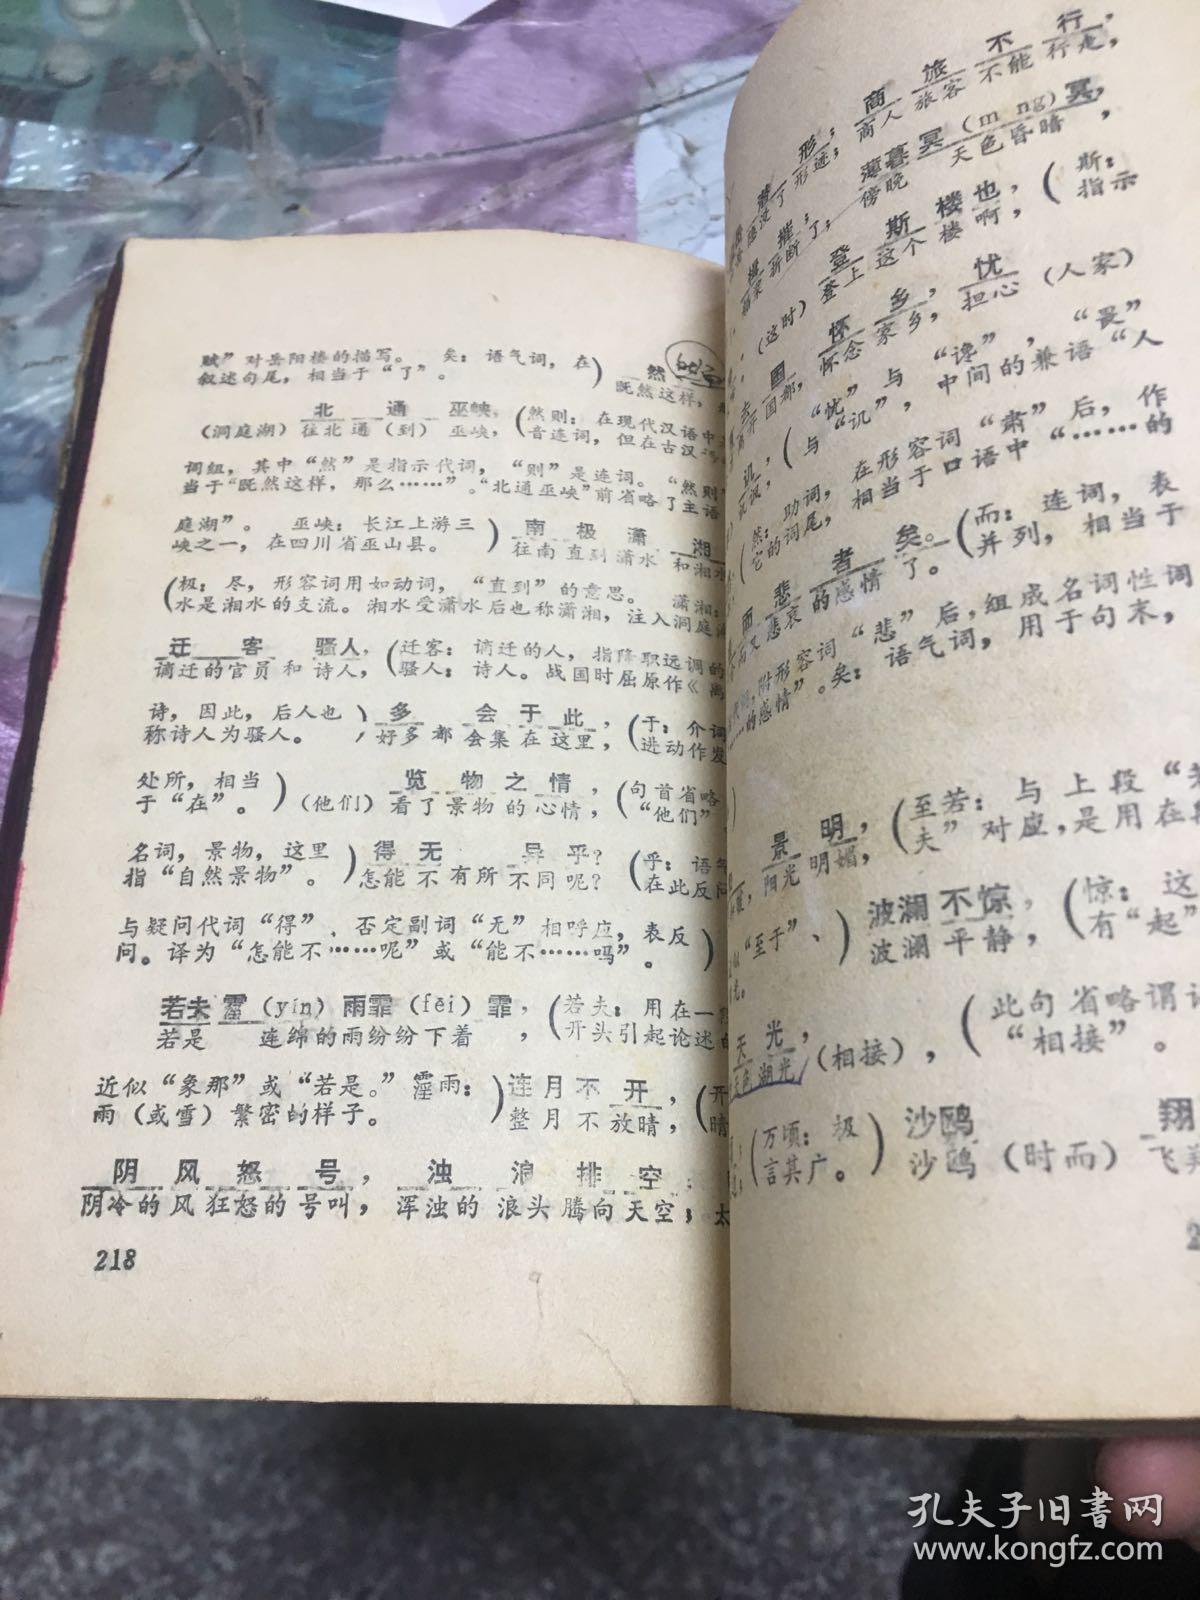 赋”对岳阳楼的描写。 矣：语气词，在
叙述句尾，相当于“了”。
然
既然这样，
北 通 巫峡，
(洞庭湖) 往北通(到) 巫峡，
(然则：在现代汉语中
音连词，但在古汉
词组，其中“然”是指示代词，“则”是连词。“然则”
当于“既然这样，那么……”。“北通巫峡”前省略了主语
庭湖”。 巫峡：长江上游三
峡之一，在四川省巫山县。)
南 极 潇 湘
往南直到潇水 和湘水
(极：尽，形容词用如动词，“直到”的意思。 潇湘：
水是湘水的支流。湘水受潇水后也称潇湘，注入洞庭
迁 客 骚人，
谪迁的官员和诗人，
(迁客：谪迁的人，指降职远调的
骚人：诗人。战国时屈原作《离
诗，因此，后人也
称诗人为骚人。)
多 会于此，
好多都会集在这里，
(于：介词
进动作发
处所，相当
于“在”。)
览物之情，
(他们) 看了景物的心情，
(句首省略
“他们”
名词，景物，这里
指“自然景物”。)
得无 异乎？
怎能不有所不同呢？
(乎：语气
在此反问
与疑问代词“得”、否定副词“无”相呼应，表反
问。译为“怎能不……呢”或“能不……吗”。)
若夫霪(yín)雨霏(fēi)霏，
若是 连绵的雨纷纷下着，
(若夫：用在一
开头引起论述
近似“象那”或“若是。”霪雨：
雨(或雪)繁密的样子。)
连月不开，
整月不放晴，
(开
晴
阴风怒号， 浊浪排空，
阴冷的风狂怒的号叫， 浑浊的浪头腾向天空；太
218
形； 商旅不行，
了形迹； 商人旅客不能行走，
摧； 薄暮冥(m ng)冥，
折断了； 傍晚 天色昏暗，
登斯楼也，
(这时) 登上这个楼啊，
(斯：
指示
国怀乡， 忧
国都，怀念家乡，担心(人家)
讥， (“忧”与“谗”，“畏”
与“讥”，中间的兼语“人
(然：助词，在形容词“肃”后，作
它的词尾，相当于口语中“……的
而悲者矣。
而又悲哀的感情了。
(而：连词，表
并列，相当于
附形容词“悲”后，组成名词性词
……的感情”。矣：语气词，用于句末，
景明，
阳光明媚，
(至若：与上段“若
夫”对应，是用在
“至于”、)
波澜不惊，
波澜平静，
(惊：这
有“起”
天光，
湖光(相接)，
(此句省略谓语
“相接”。
(万顷：极
言其广。)
沙鸥 翔
沙鸥(时而)飞翔
孔夫子旧书网
www.kongfz.com